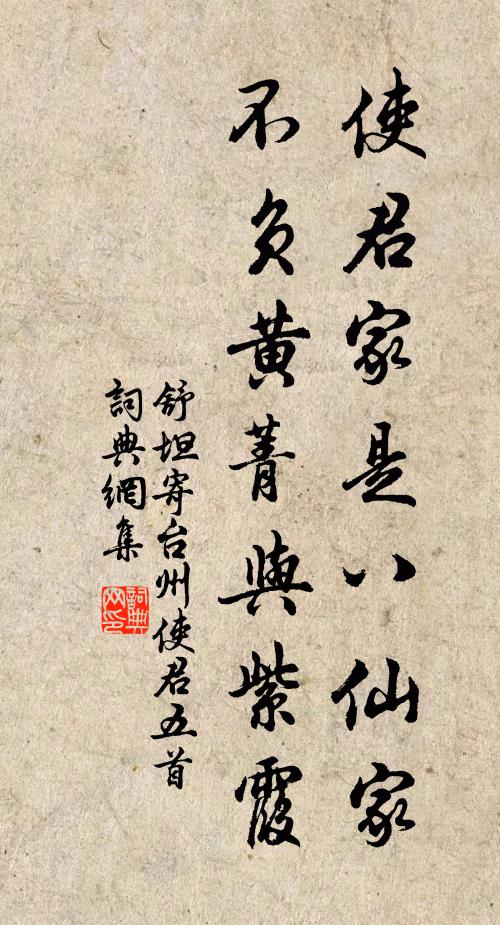 使君家是八仙家
不負黃菁與紫霞
舒坦寄台州使君五首
詞典網集
詞典
网印